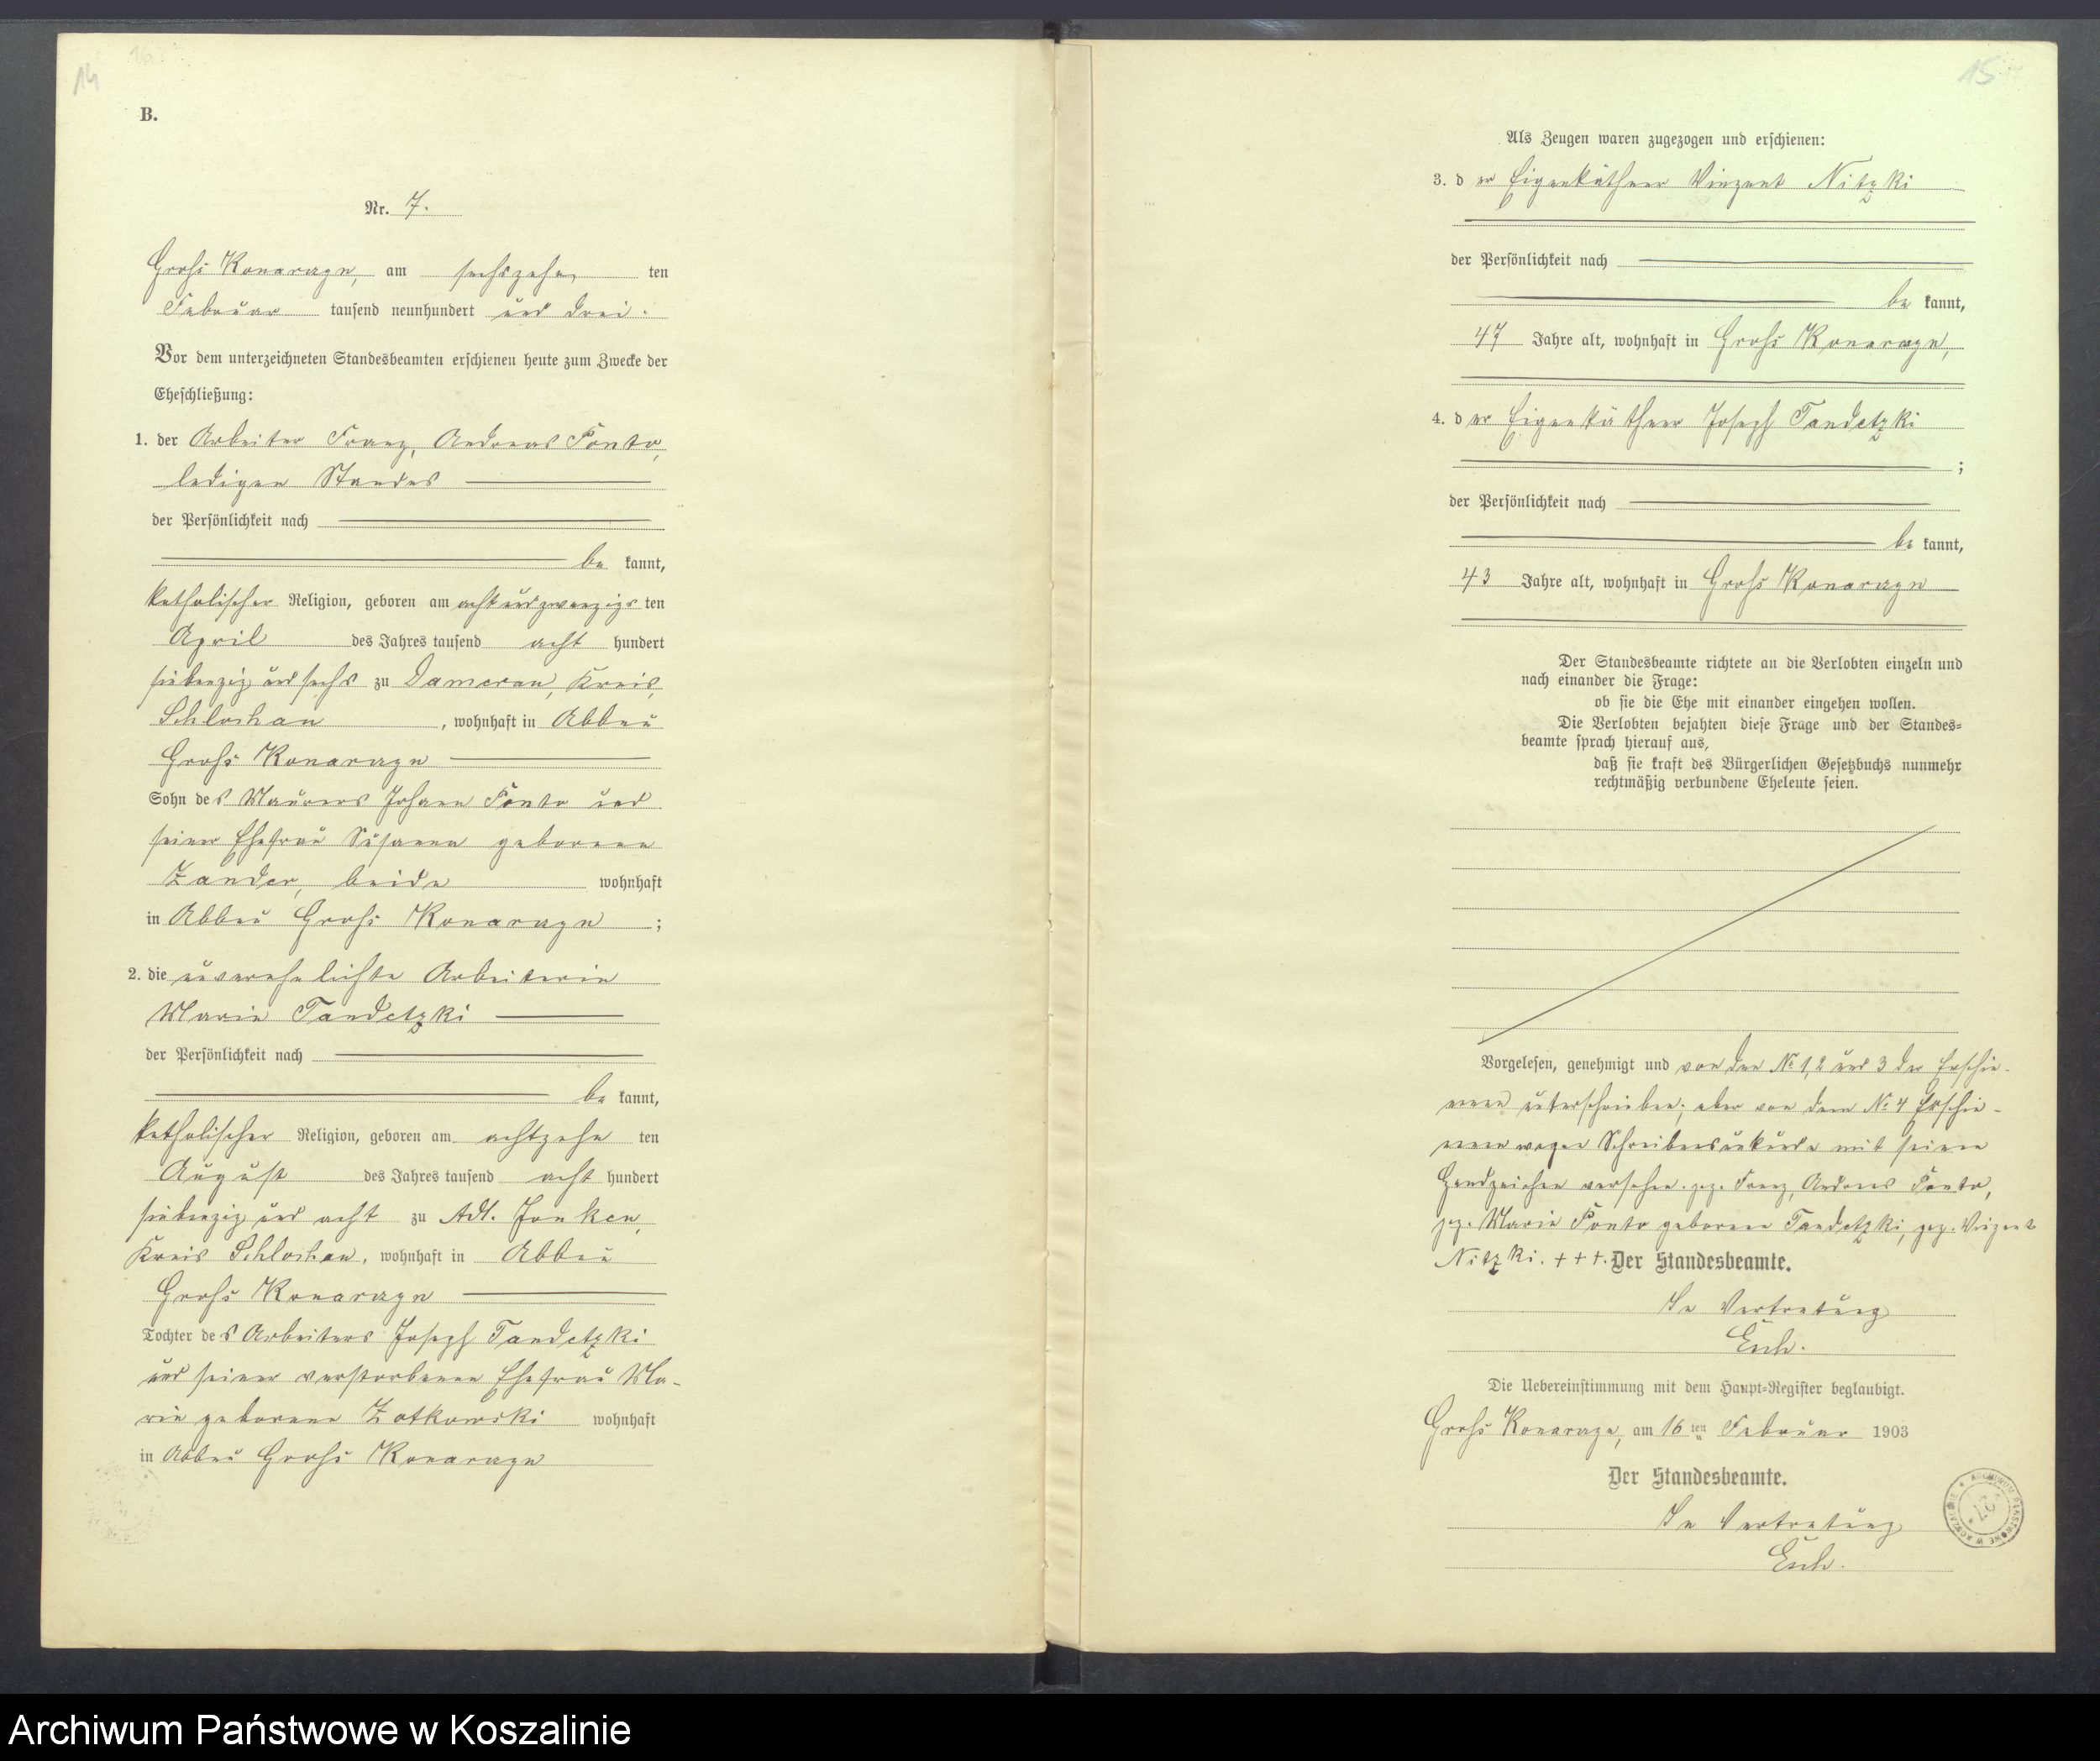 14
B.
Nr. 7.
Groß Konarczyn, am sechszehn ten
Februar tausend neunhundert und drei.
Vor dem unterzeichneten Standesbeamten erschienen heute zum Zwecke der
Eheschließung:
1. der Arbeiter Franz, Andreas Ponto,
ledigen Standes
der Persönlichkeit nach
be kannt,
katholischer Religion, geboren am achtundzwanzigs ten
April des Jahres tausend acht hundert
siebenzig und sechs zu Damerau, Kreis
Schlochau, wohnhaft in Abbau
Groß Konarczyn
Sohn des Maurers Johann Ponto und
seiner Ehefrau Susanna geborenen
Zander, beide wohnhaft
in Abbau Groß Konarczyn;
2. die unverehelichte Arbeiterin
Marie Tandetzki
der Persönlichkeit nach
be kannt,
katholischer Religion, geboren am achtzehn ten
August des Jahres tausend acht hundert
siebenzig und acht zu Adl.
Kreis Schlochau, wohnhaft in Abbau
Groß Konarczyn
Tochter des Arbeiters Joseph Tandetzki
und seiner verstorbenen Ehefrau Ma-
rie geborene Zotkowski wohnhaft
in Abbau Groß Konarczyn
15
Als Zeugen waren zugezogen und erschienen:
3. d er Eigenkäthner Vinzent Nitzki
der Persönlichkeit nach
be kannt,
47 Jahre alt, wohnhaft in Groß Konarczyn,
4. d er Eigenkäthner Joseph Tandetzki
;
der Persönlichkeit nach
be kannt,
43 Jahre alt, wohnhaft in Groß Konarczyn
Der Standesbeamte richtete an die Verlobten einzeln und
nach einander die Frage:
ob sie die Ehe mit einander eingehen wollen.
Die Verlobten bejahten diese Frage und der Standes=
beamte sprach hierauf aus,
daß sie kraft des Bürgerlichen Gesetzbuchs nunmehr
rechtmäßig verbundene Eheleute seien.
Vorgelesen, genehmigt und von den No 1, 2 und 3 der Erschie-
nenen unterschrieben; aber von dem No 4 Erschie-
nenen wegen Schreibensunkunde mit seinem
Handzeichen versehen. gez. Franz, Andreas Ponto,
gez. Marie Ponto geborene Tandetzki, gez. Vinzent
Nitzki. +++. Der Standesbeamte.
In Vertretung
Esch.
Die Uebereinstimmung mit dem Haupt=Register beglaubigt.
Groß Konarczyn, am 16 ten Februar 1903
Der Standesbeamte.
In Vertretung
Esch.
Archiwum Państwowe w Koszalinie